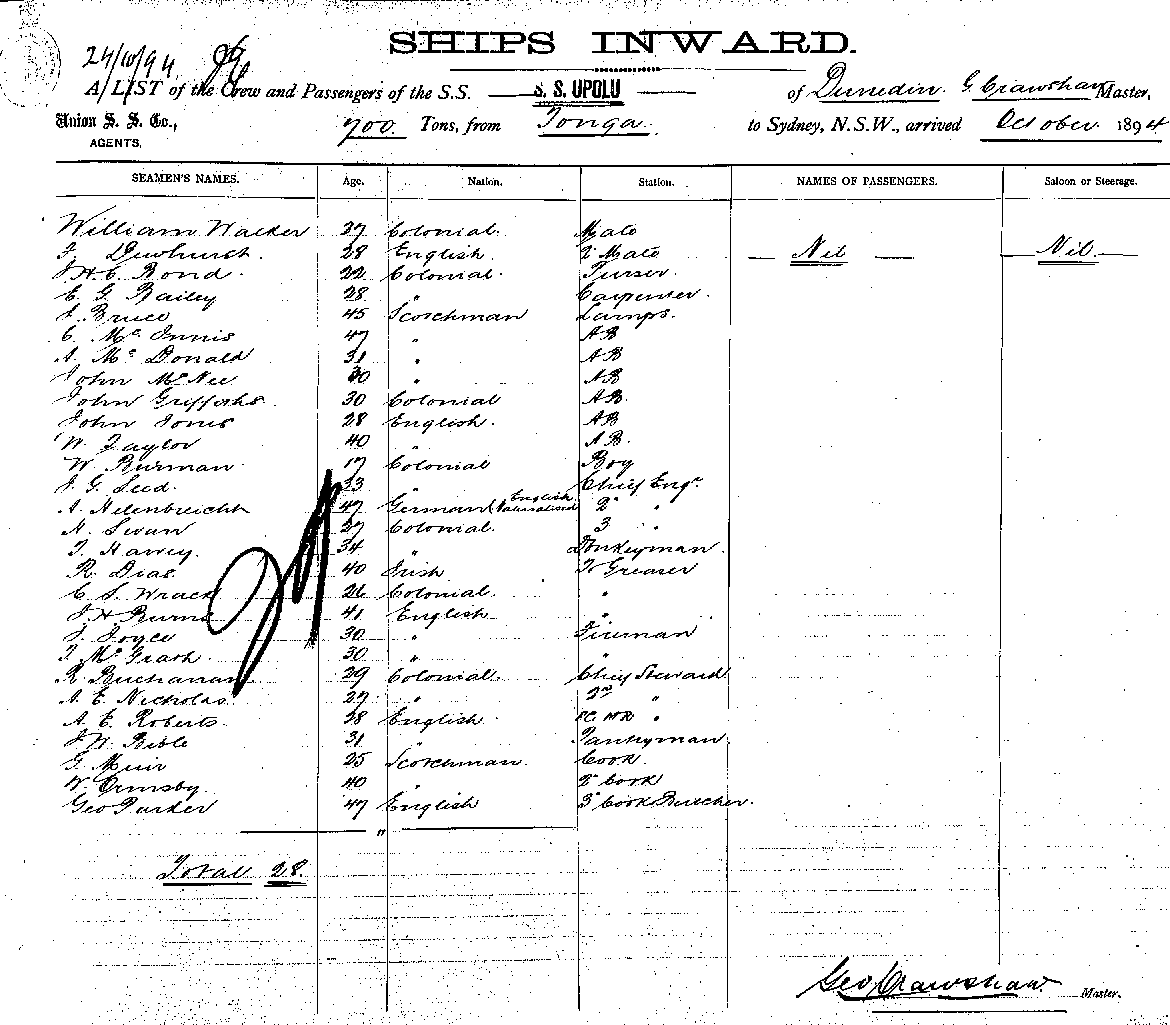 SHIPS INWARD.
24/10/94
A LIST of the Crew and Passengers of the S.S. S. S. UPOLU of Dunedin. G. Crawshaw Master,
Union S. S. Co., 700 Tons, from Tonga. to Sydney, N.S.W., arrived October 1894
AGENTS.
SEAMEN'S NAMES. Age. Nation. Station. NAMES OF PASSENGERS. Saloon or Steerage.
William Walker 27 Colonial. Mate
Dewhurst. 28 English. 2 Mate Nil Nil.
J.H.C. Bond. 22 Colonial. Purser.
E. G. Bailey 28 " Carpenter.
J. Bruce 45 Scotchman Lamps.
C. Mc Innis 47 " AB
A. Mc Donald 31 " AB
John McNee 30 " AB
John Griffiths. 30 Colonial AB.
John Jones 28 English. AB
W. Taylor 40 AB.
W. Burman. 17 Colonial Boy
J. G. Seed. 33 Chief Engr.
A. 47 German (English Naturalised 2" "
H. Swan 27 Colonial. 3 "
T. Harvey. 34 " Donkeyman.
R. Dias. 40 Irish Greaser
C. S. Wrack 26 Colonial. "
J. H. Burns 41 English "
J. Joyce 30 " Fireman
T. McGrath. 30 " "
R. Buchanan 29 Colonial. Chief Steward
A. E. Nicholas. 27 " 2nd "
A. E. Roberts. 28 English. "
J. W. Bible 31 " Pantryman.
G. Muir 25 Scotchman. Cook.
W. Ormsby 40 2" Cook
Geo Parker 47 English 3" Cook Butcher.
"
Total 28.
Geo Crawshaw. Master.